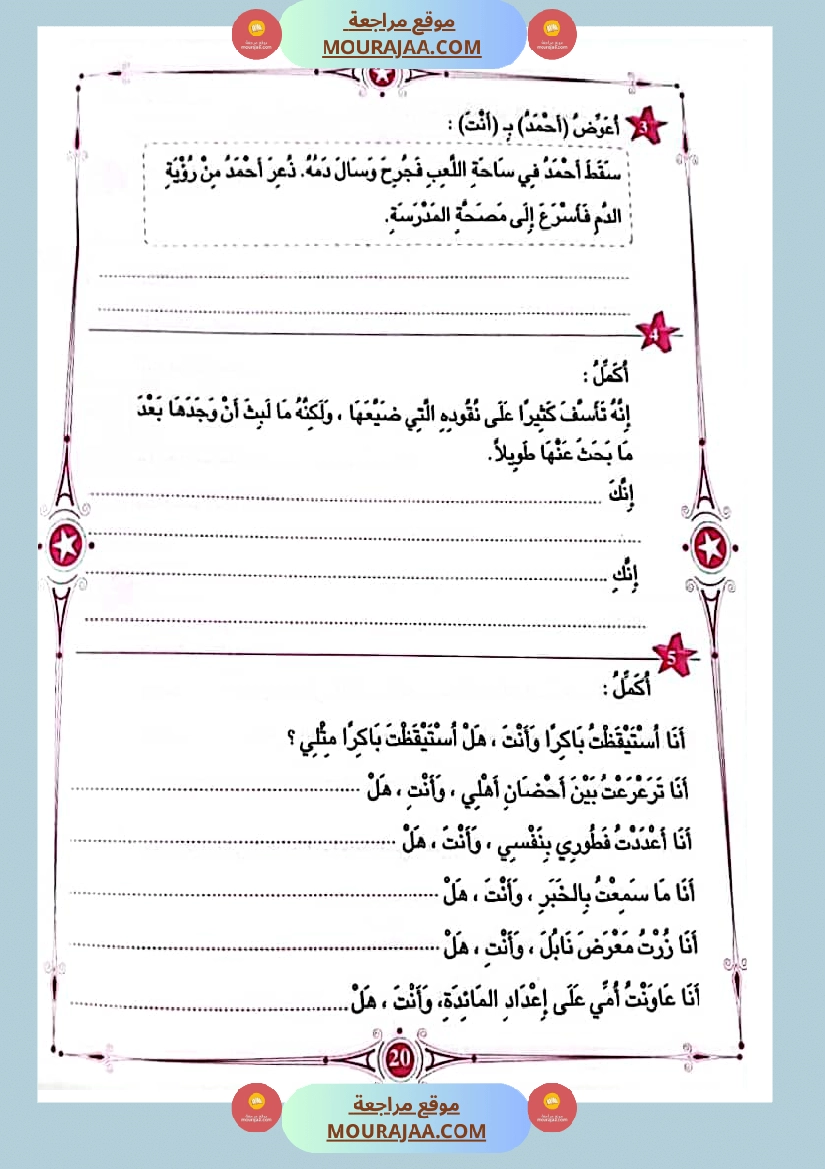 موقع مراجعة
MOURAJAA.COM
3 أُعَوِّضُ (أَحْمَدُ) بِـ (أَنْتَ) :
سَقَطَ أَحْمَدُ فِي سَاحَةِ اللَّعِبِ فَجُرِحَ وَسَالَ دَمُهُ. ذُعِرَ أَحْمَدُ مِنْ رُؤْيَةِ
الدَّمِ فَأَسْرَعَ إِلَى مَصَحَّةِ المَدْرَسَةِ.
4
أُكَمِّلُ :
إِنَّهُ تَأَسَّفَ كَثِيرًا عَلَى نُقُودِهِ الَّتِي ضَيَّعَهَا ، وَلَكِنَّهُ مَا لَبِثَ أَنْ وَجَدَهَا بَعْدَ
مَا بَحَثَ عَنْهَا طَوِيلاً.
إِنَّكَ
إِنَّكِ
5
أُكَمِّلُ :
أَنَا اُسْتَيْقَظْتُ بَاكِرًا وَأَنْتَ ، هَلْ اُسْتَيْقَظْتَ بَاكِرًا مِثْلِي ؟
أَنَا تَرَعْرَعْتُ بَيْنَ أَحْضَانِ أَهْلِي ، وَأَنْتِ ، هَلْ
أَنَا أَعْدَدْتُ فَطُورِي بِنَفْسِي ، وَأَنْتَ ، هَلْ
أَنَا مَا سَمِعْتُ بِالخَبَرِ ، وَأَنْتَ ، هَلْ
أَنَا زُرْتُ مَعْرَضَ نَابُلَ ، وَأَنْتِ ، هَلْ
أَنَا عَاوَنْتُ أُمِّي عَلَى إِعْدَادِ المَائِدَةِ، وَأَنْتَ ، هَلْ
20
موقع مراجعة
MOURAJAA.COM